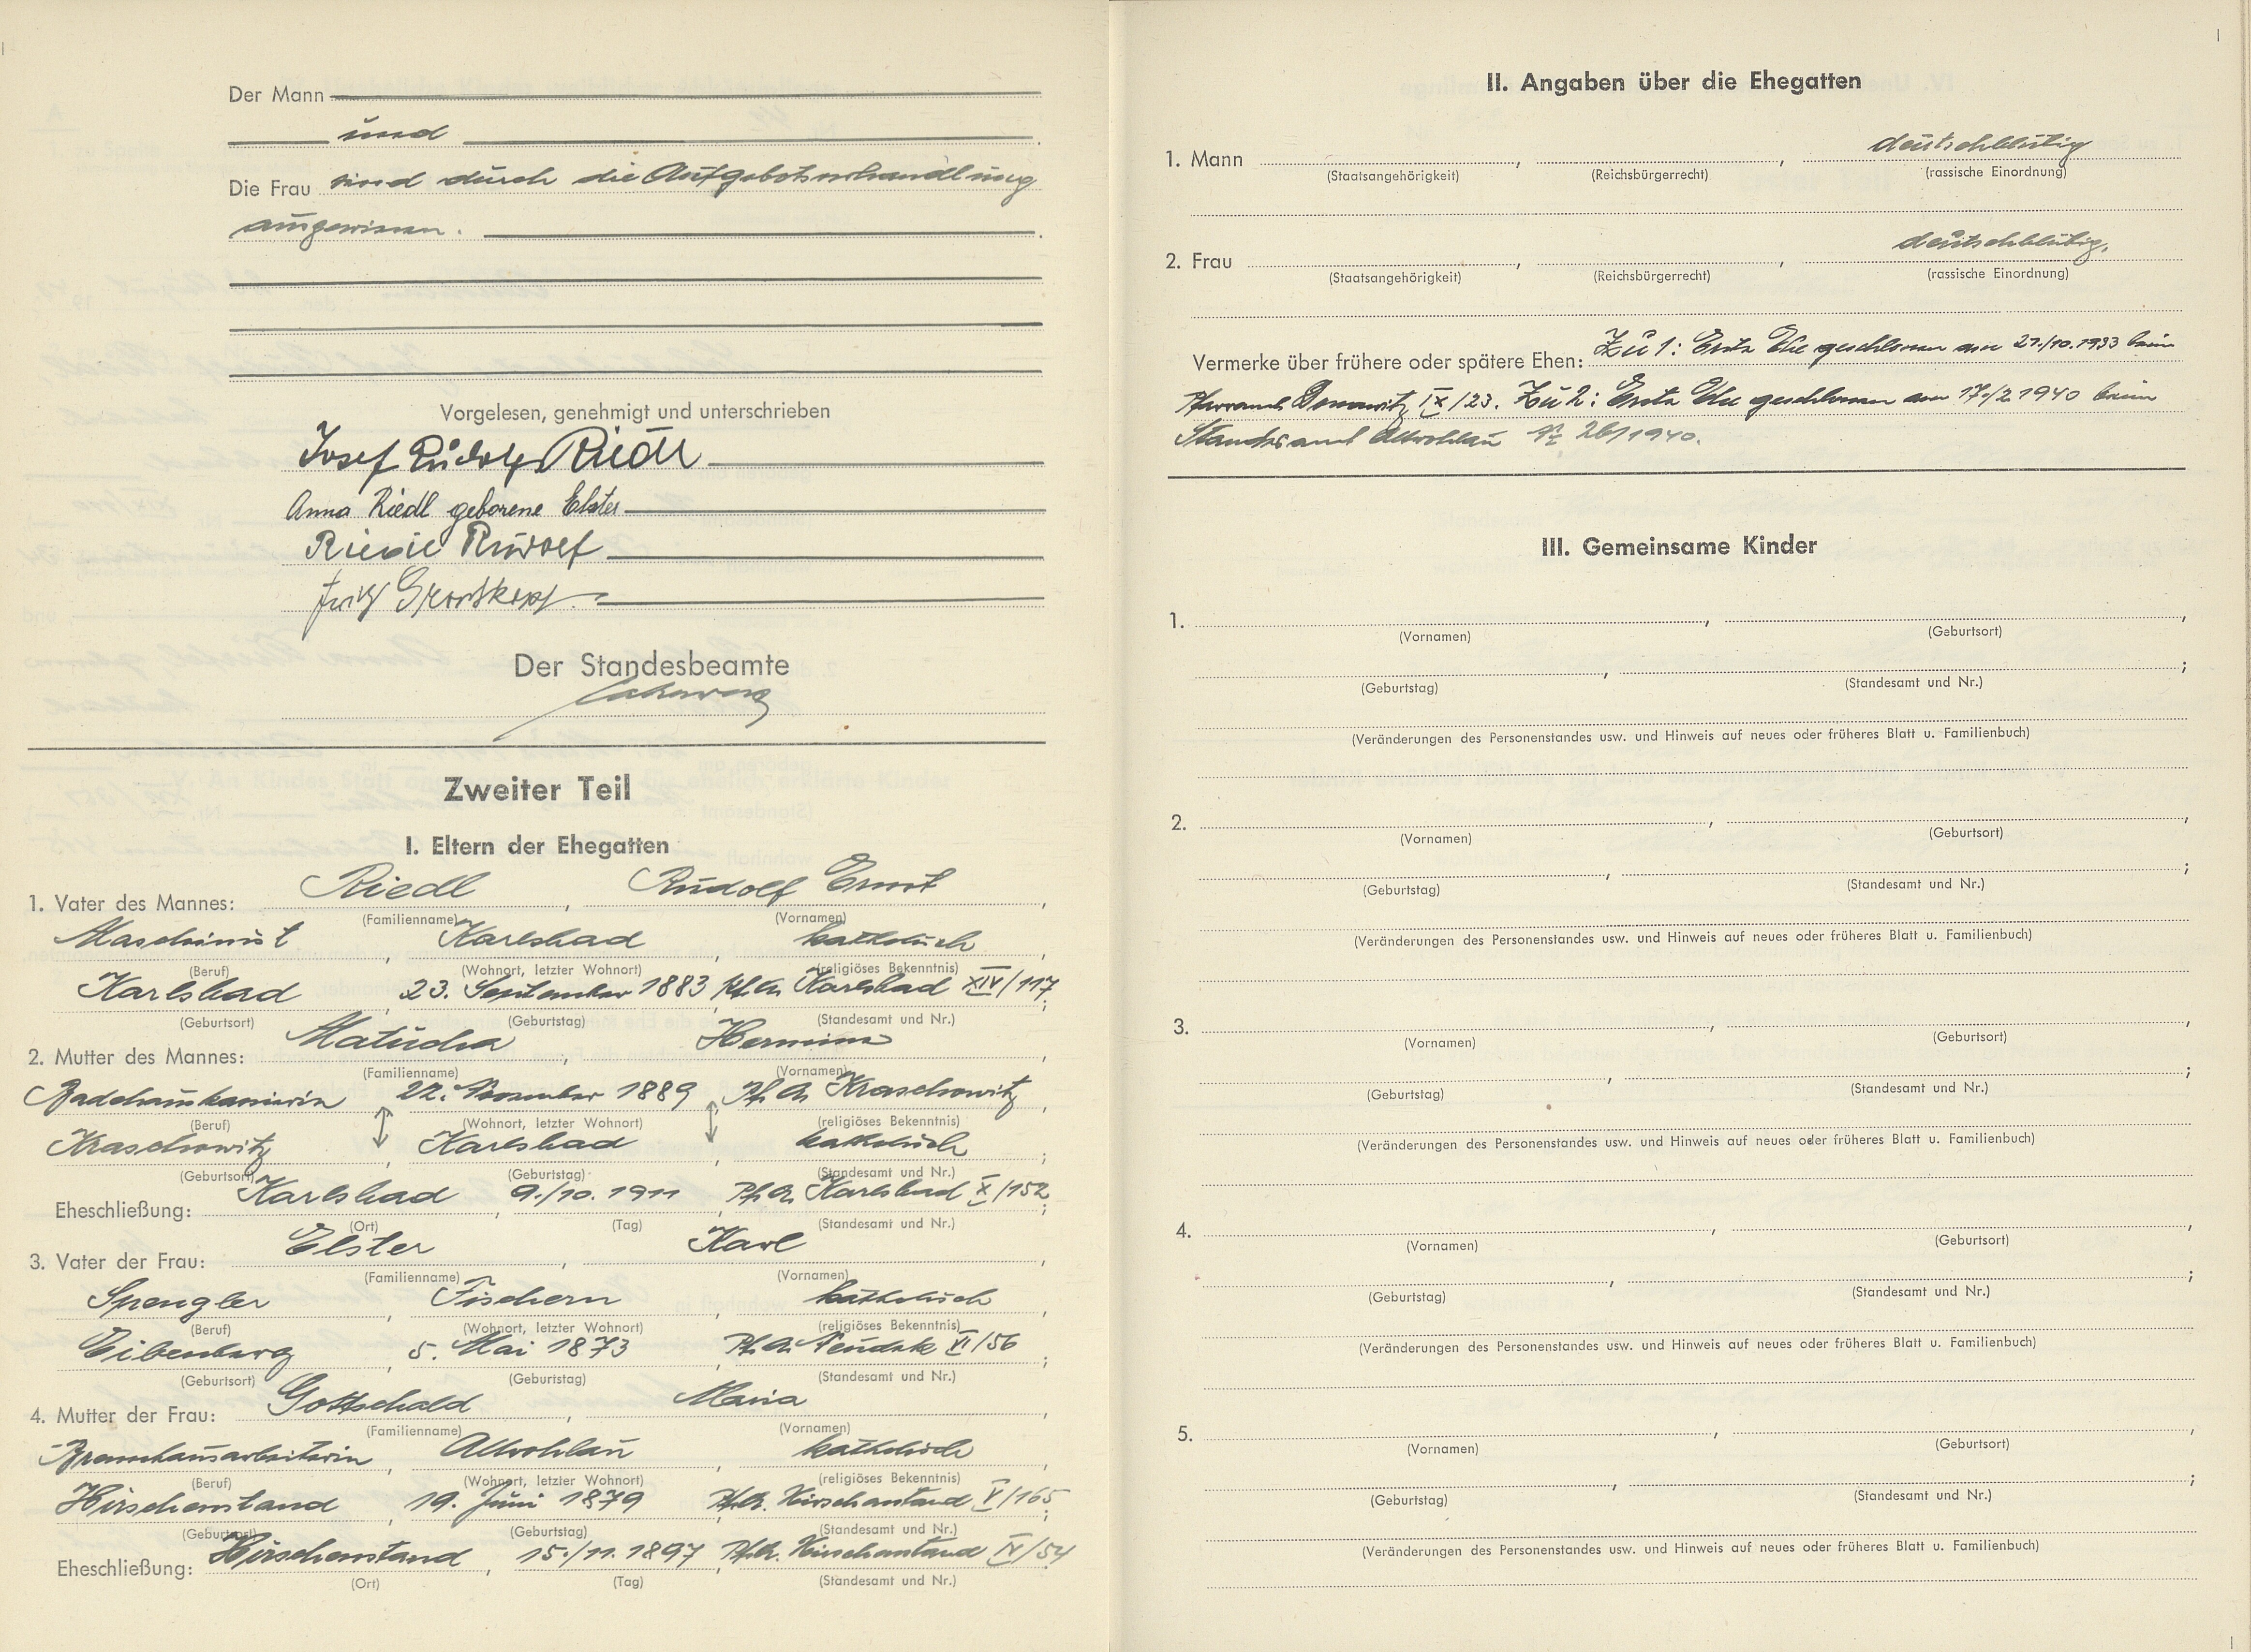 Der Mann
und
Die Frau sind durch die Aufgebotsverhandlung
ausgewiesen.
Vorgelesen, genehmigt und unterschrieben
Josef Rudolf Riedl
Anna Riedl geborene Elster
Riedl Rudolf
Fritz
Der Standesbeamte
Zweiter Teil
I. Eltern der Ehegatten
1. Vater des Mannes: Riedl, Rudolf Ernst,
(Familienname) (Vornamen)
Maschinist, Karlsbad, katholisch,
(Beruf) (Wohnort, letzter Wohnort) (religiöses Bekenntnis)
Karlsbad, 23. September 1883 Pf.A. Karlsbad XIV/117;
(Geburtsort) (Geburtstag) (Standesamt und Nr.)
2. Mutter des Mannes: Matucha, Hermine,
(Familienname) (Vornamen)
Badehauskassierin 22. November 1889 Pf.A. Kraschowitz,
(Beruf) (Wohnort, letzter Wohnort) (religiöses Bekenntnis)
Kraschowitz, Karlsbad, katholisch;
(Geburtsort) (Geburtstag) (Standesamt und Nr.)
Eheschließung: Karlsbad, 9./10. 1911, Pf.A. Karlsbad X/152;
(Ort) (Tag) (Standesamt und Nr.)
3. Vater der Frau: Elster, Karl,
(Familienname) (Vornamen)
Spengler, Fischern, katholisch,
(Beruf) (Wohnort, letzter Wohnort) (religiöses Bekenntnis)
Eibenberg, 5. Mai 1873, Pf.A. Neudek VI/56;
(Geburtsort) (Geburtstag) (Standesamt und Nr.)
4. Mutter der Frau: Gottschald, Maria,
(Familienname) (Vornamen)
Altrohlau, katholisch,
(Beruf) (Wohnort, letzter Wohnort) (religiöses Bekenntnis)
Hirschenstand, 19. Juni 1879, Pf.A. Hirschenstand V/165;
(Geburtsort) (Geburtstag) (Standesamt und Nr.)
Eheschließung: Hirschenstand, 15./11. 1897, Pf.A. Hirschenstand IV/54
(Ort) (Tag) (Standesamt und Nr.)
II. Angaben über die Ehegatten
1. Mann , , deutschblütig
(Staatsangehörigkeit) (Reichsbürgerrecht) (rassische Einordnung)
2. Frau , , deutschblütig.
(Staatsangehörigkeit) (Reichsbürgerrecht) (rassische Einordnung)
Vermerke über frühere oder spätere Ehen: Zu 1: Erste Ehe geschlossen am 21./10. 1933 beim
Pfarramt IX/23. Zu 2: Erste Ehe geschlossen am 17./2. 1940 beim
Standesamt Altrohlau Nr. 26/1940.
III. Gemeinsame Kinder
1. , ,
(Vornamen) (Geburtsort)
, ;
(Geburtstag) (Standesamt und Nr.)
(Veränderungen des Personenstandes usw. und Hinweis auf neues oder früheres Blatt u. Familienbuch)
2. , ,
(Vornamen) (Geburtsort)
, ;
(Geburtstag) (Standesamt und Nr.)
(Veränderungen des Personenstandes usw. und Hinweis auf neues oder früheres Blatt u. Familienbuch)
3. , ,
(Vornamen) (Geburtsort)
, ;
(Geburtstag) (Standesamt und Nr.)
(Veränderungen des Personenstandes usw. und Hinweis auf neues oder früheres Blatt u. Familienbuch)
4. , ,
(Vornamen) (Geburtsort)
, ;
(Geburtstag) (Standesamt und Nr.)
(Veränderungen des Personenstandes usw. und Hinweis auf neues oder früheres Blatt u. Familienbuch)
5. , ,
(Vornamen) (Geburtsort)
, ;
(Geburtstag) (Standesamt und Nr.)
(Veränderungen des Personenstandes usw. und Hinweis auf neues oder früheres Blatt u. Familienbuch)